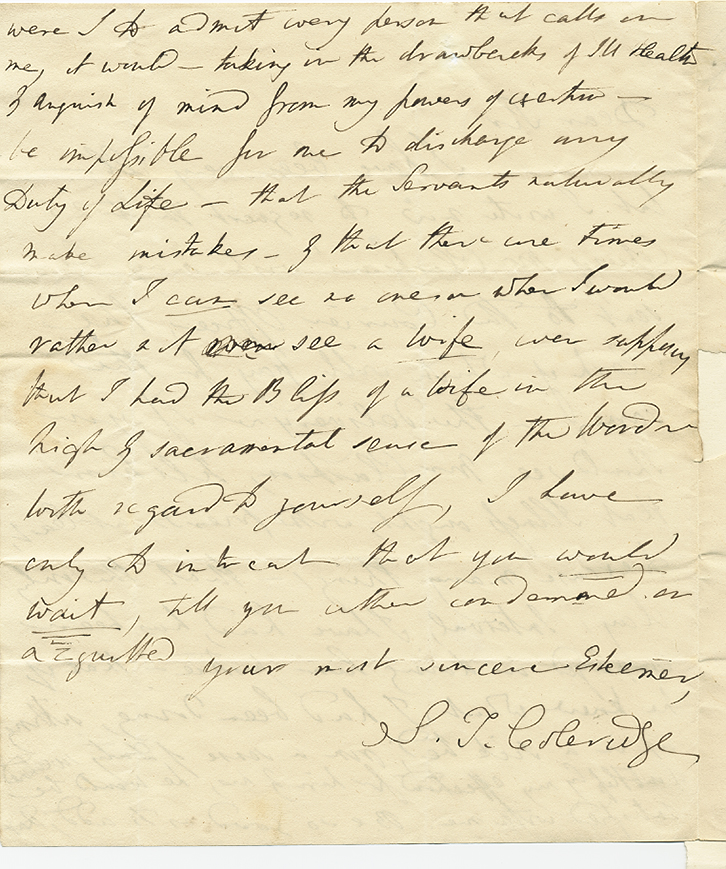 were I to admit every person that calls on
me, it would — taking in the drawbacks of Ill Health
& anguish of mind from my powers of exertion —
be impossible for me to discharge any
Duty of Life — that the Servants naturally
make mistakes — & that there are times
when I can see no one, or when I would
rather not see a wife, even supposing
that I had the Bliss of a Wife in the
high & sacramental sense of the Word
With regard to yourself, I have
only to intreat that you would
wait, till you either condemned or
acquitted your most sincere Esteemer,
S. T. Coleridge